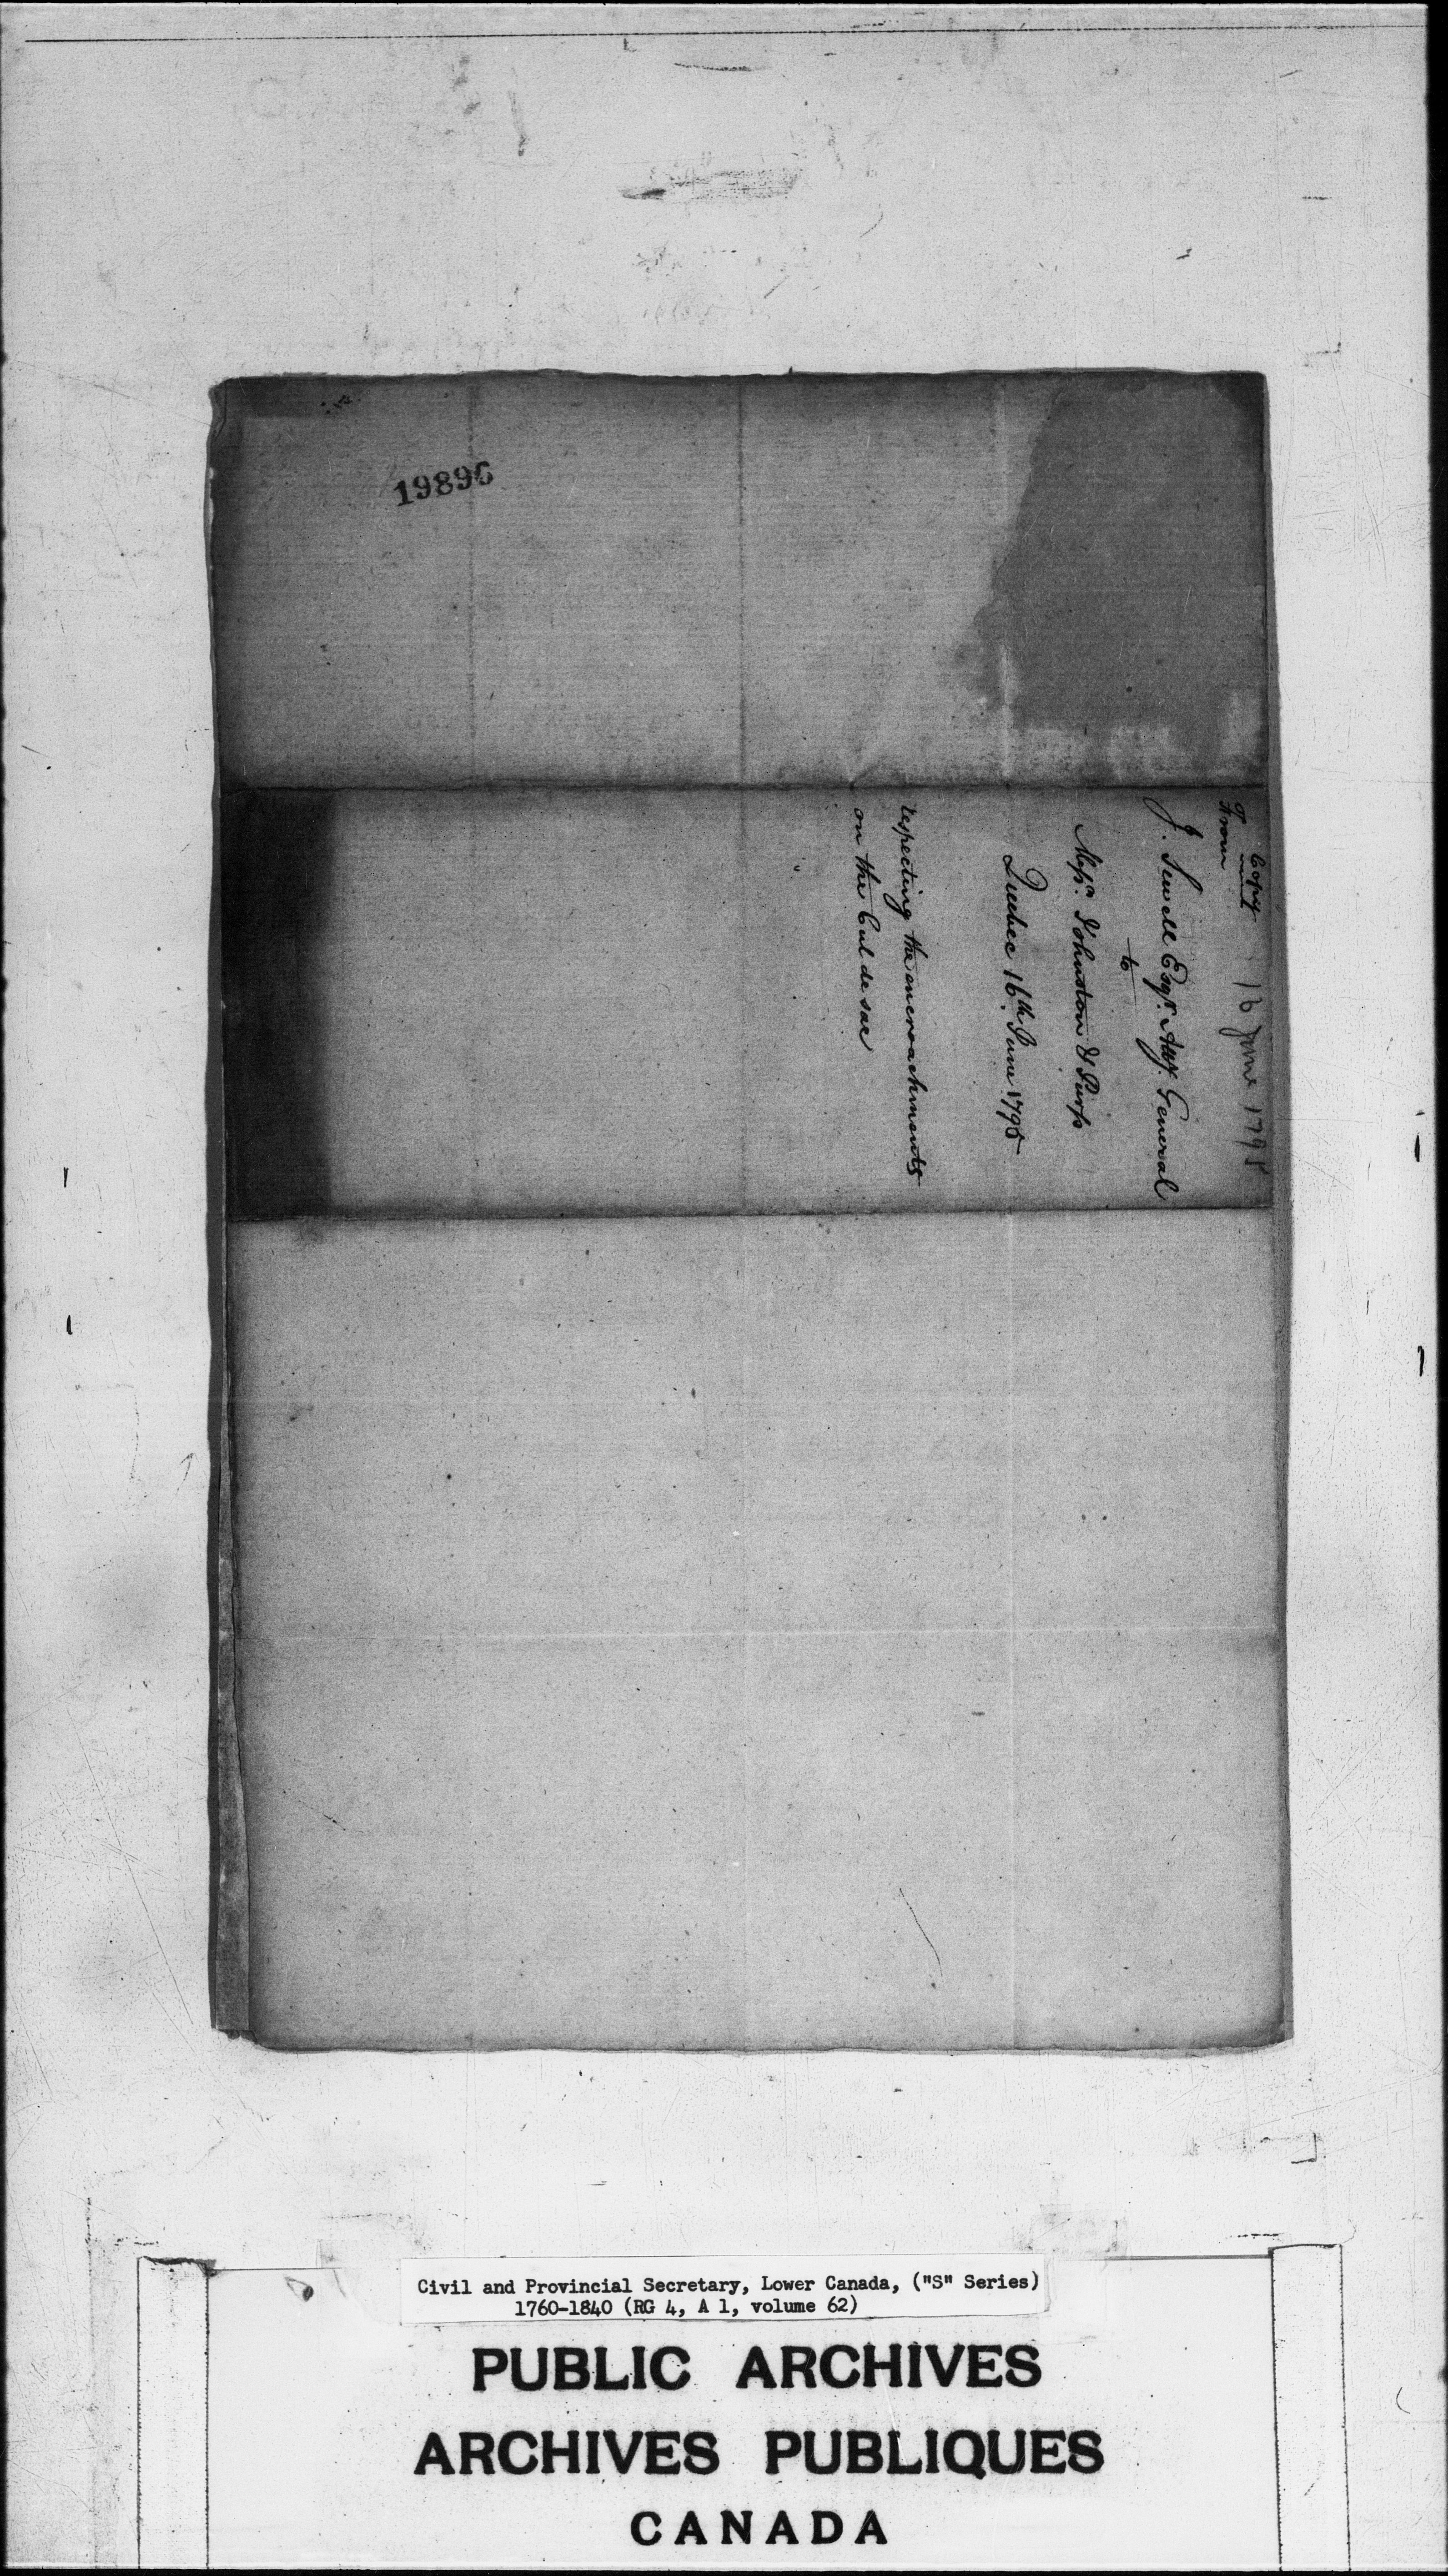 19896
Copy 16 June 1795
From
J. Sewell Esqr. Atty. General
to
Messrs. Johnston & Purss
Quebec 16th June 1795
respecting the encroachments
on the Cul de sac
Civil and Provincial Secretary, Lower Canada, ("S" Series)
1760-1840 (RG 4, A 1, volume 62)
PUBLIC ARCHIVES
ARCHIVES PUBLIQUES
CANADA